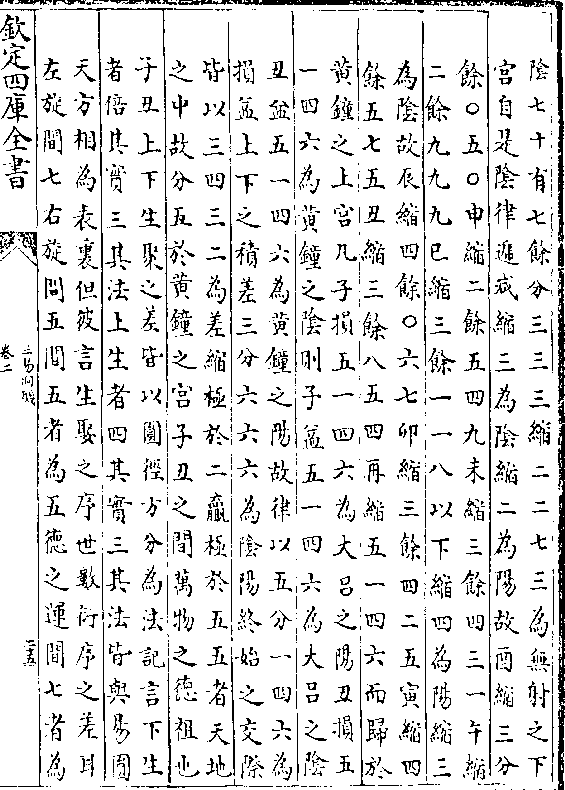 陰七十有七餘分三三三縮二二七三為無射之下
宮自是陰律遞減縮三為陰縮二為陽故酉縮三分
餘〇五〇申縮二餘五四九未縮三餘四三一午縮
二餘九九九巳縮三餘一一八以下縮四為陽縮三
為陰故辰縮四餘〇六七卯縮三餘四二五寅縮四
餘五七五丑縮三餘八五四再縮五一四六而歸於
黃鐘之上宮凡子損五一四六為大呂之陽丑損五
一四六為黃鐘之陰則子益五一四六為大呂之陰
丑益五一四六為黃鐘之陽故律以五分一四六為
損益上下之積差三分六六六為陰陽終始之交際
皆以三四三二為差縮極於二贏極於五五者天地
之中故分五於黃鐘之宮子丑之間萬物之德祖也
子丑上下生聚之差皆以圓徑方分為法記言下生
者倍其實三其法上生者四其實三其法皆與易圓
天方相為表裏但彼言生娶之序世數衍序之差耳
左旋間七右旋間五間五者為五德之運間七者為
欽定四庫全書
三易洞璣
卷二
二五